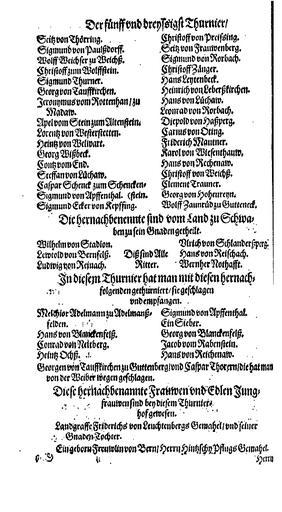 Der fünff und dreyssigst Thurnier/
Seitz von Thörring.
Sigmund von Paulßdorff.
Wolff Weichser zu Weichß.
Christoff zum Wolffstein.
Sigmund Thurner.
Georg von Tauffkirchen.
Jeronymus vom Rottenhan/ zu
Madaw.
Apel vom Stein zum Altenstein.
Lorentz von Westerstetten.
Heintz von Welwart.
Georg Wißbeck.
Contz vom End.
Steffan von Lüchaw.
Caspar Schenck zum Schencken-
Sigmund von Apffenthal. (stein.
Sigmund Ecker von Kepffing.
Christoff von Preising.
Seitz von Frauwenberg.
Sigmund von Rorbach.
Christoff Zänger.
Hans Leytenbeck.
Heinrich von Leberßkirchen.
Hans von Lüchaw.
Leonrad von Rorbach.
Diepold von Haßperg.
Carius von Oting.
Friderich Mautner.
Karol von Wiesenthauw.
Hans von Rechenaw.
Christoff von Weichß.
Clement Trauner.
Georg von Hohenreyn.
Wolff Zaunrüd zu Guttenecz.
Die hernachbenennte sind vom Land zu Schwa-
ben zu sein Gnaden getheilt.
Wilhelm von Stadion.
Lewold von Bernfelß.
Ludwig von Reinach.
Diß sind Alle
Ritter.
Ulrich von Schlanderßperg
Hans von Reischach.
Wernher Nothafft.
In diesem Thurnier hat man mit diesen hernach-
folgenden gethurniert/ sie geschlagen
und empfangen.
Melchior Adelmann zu Adelmanß-
felden.
Hans von Blanckenfelß.
Conrad von Neleberg.
Heintz Ochß.
Sigmund von Apffenthal.
Ein Sieber.
Georg von Blanckenfelß.
Jacob von Rabenstein.
Hans von Reichenaw.
Georgen von Tauffkirchen zu Guttenberg/ und Caspar Thorern/ die hat man
von der Weiber wegen geschlagen.
Diese hernachbenannte Frauwen und Edlen Jung-
frauwen sind bey diesem Thurnier-
hof gewesen.
Landgraffe Friderichs von Leuchtenbergs Gemahel/ und seiner
Gnaden Tochter.
Ein geborn Freuwlin von Bern/ Herrn Hintzschy Pflugs Gemahel.
Herrn